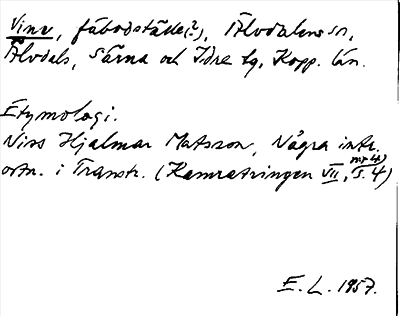 Vinv, fäbodställe(?), Älvdalens sn,
Älvdals, Särna och Idre tg, Kopp. län.
Etymologi.
Niss Hjalmar Matsson, Några intr.
ortn. i Transtr. (Kamratringen VII, nr 4), s. 4)
E. L. 1957.